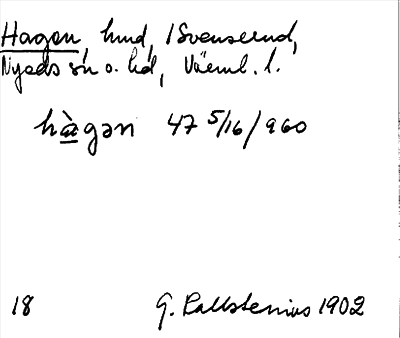 Hagen, hmd, i Svenserud,
Nyeds sn o. hd, Värml. l.
hàgən 47 5/16/960
18 G. Kallstenius 1902